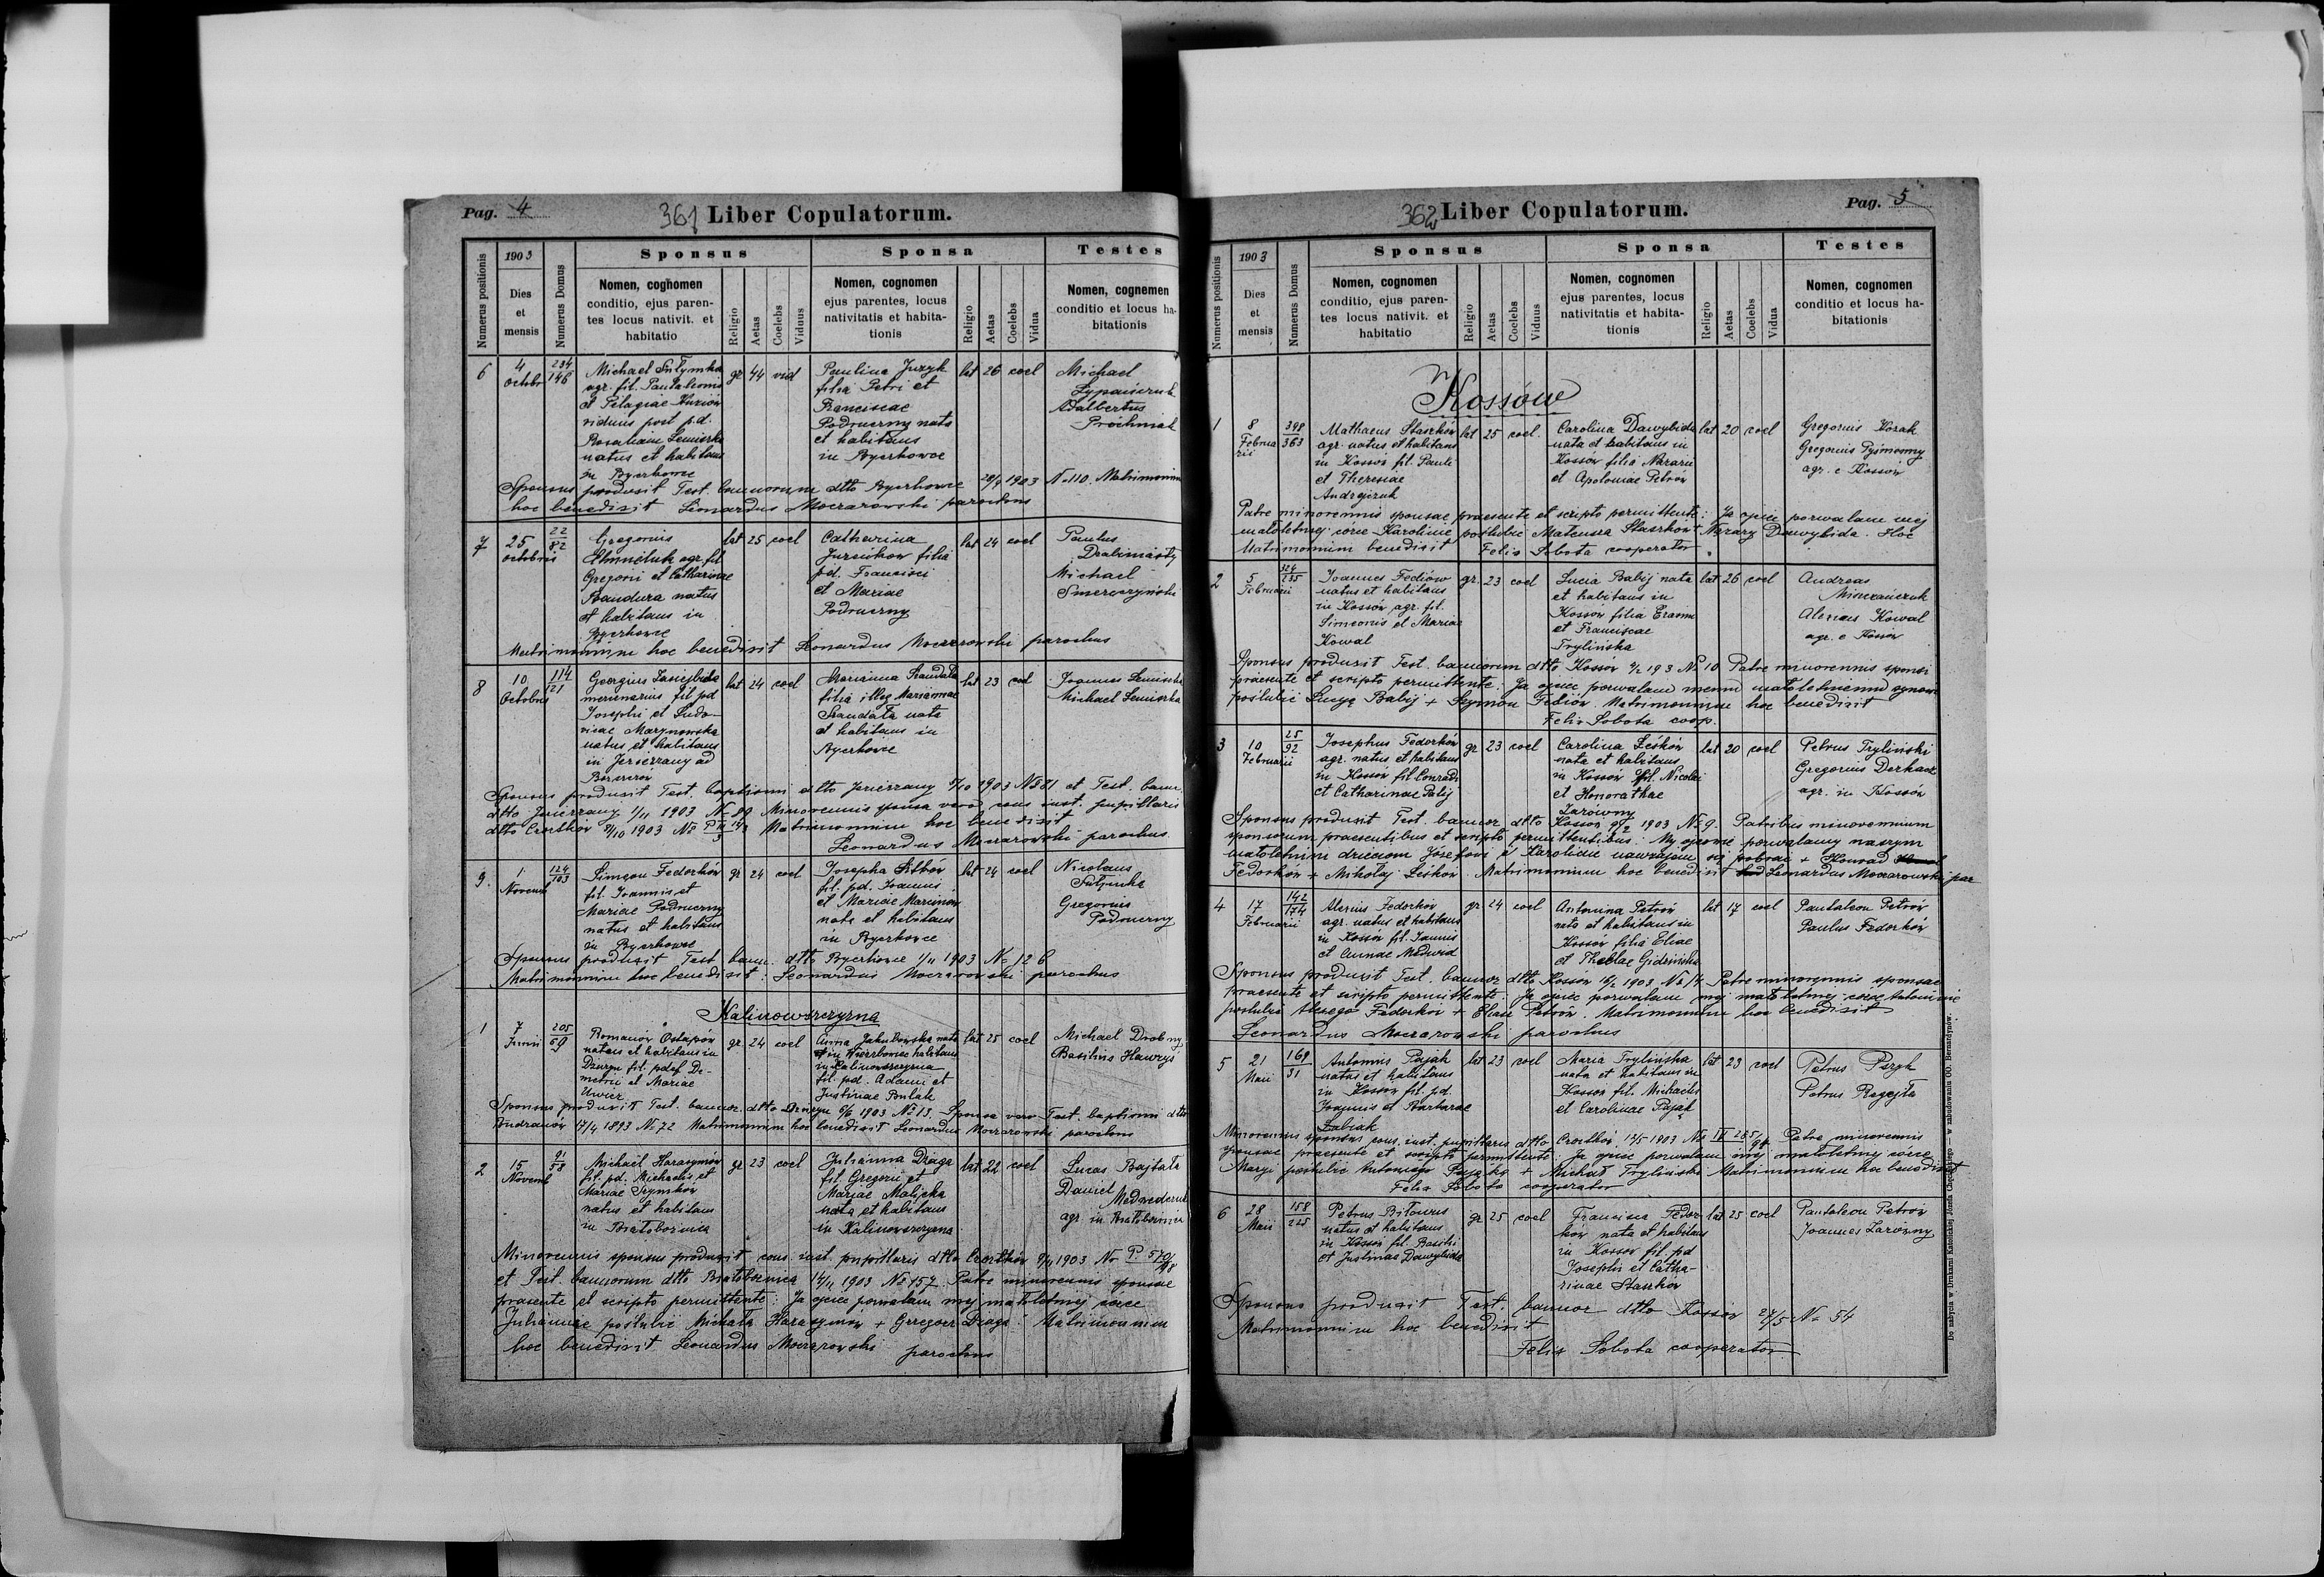 Pag. 4
361 Liber Copulatorum.
Numerus positionis
1903
Dies
et
mensis
Numerus Domus
Sponsus
Nomen, cognomen
conditio, ejus paren-
tes locus nativit. et
habitatio
Religio
Aetas
Coelebs
Viduus
Sponsa
Nomen, cognomen
ejus parentes, locus
nativitatis et habita-
tionis
Religio
Aetas
Coelebs
Vidua
Testes
Nomen, cognemen
conditio et locus ha-
bitationis
6
4
Octobr
234
146
Michael
agr. fil. Pantaleonis
et Pelagiae
viduus post p.d.
Rosaliam
natus et habitans
in
gr 44 vid
Paulina Juzyk
filia Petri et
Franciscae
Podruczny nata
et habitans
in
lat 26 coel
Michael
Adalbertus
Prochniak
Sponsus produxit Test. bannorum dtto 28/9 1903 No 110. Matrimonium
hoc benedixit Leonardus Moczarowski parochus
7
25
Octobris
22
82
Gregorius
agr. fil
Gregorii et Catharinae
Bandura natus
et habitans in
lat 25 coel
Catharina
filia
pd. Francisci
et Mariae
Podruczny
lat 24 coel
Paulus
Michael
Matrimonium hoc benedixit Leonardus Moczarowski parochus
8
10
Octobris
114
121
Georgius
mercenarius fil pd
Josephi et Ludo-
vicae Marynowska
natus et habitans
in Jezierzany ad
Borszczów
lat 24 coel
Marianna Szandała
filia illeg Mariannae
Szandała nata
et habitans in
lat 23 coel
Joannes
Michael
Sponsus produxit Test. baptismi dtto Jezierzany 1903 No 81 et Test. bann.
dtto Jezierzany 1/11 1903 No 89 Minorennis sponsa vero cons inst. pupillaris
dtto Czortków 1903 No Matrimonium hoc benedixit
Leonardus Moczarowski parochus
9.
1
Novemb
124
103
Simeon Fedorków
fil. Joannis et
Mariae Podruczny
natus et habitans
in
gr 24 coel
Josepha
fil. pd. Joannis
et Mariae Marcinów
nata et habitans
in
lat 24 coel
Nicolaus
Gregorius
Podruczny
Sponsus produxit Test bann. dtto 1/11 1903 No 126
Matrimonium hoc benedixit: Leonardus Moczarowski parochus
Kalinowszczyzna
1
7
Junii
205
59
Romanów Ostapów
natus et habitans in
Dżuryn fil. pdef De-
metrii et Mariae
gr. 24 coel
Anna Jakubowska nata
in Wierzbowiec habitans
in Kalinowszczyzna
fil. pd. Adami et
Justinae
lat 25 coel
Michael Drobny
Basilius Hawryś
Sponsus produxit Test. bannor. dtto Dżuryn 6/6 1903 No 13. Sponsa vero Test. baptismi dtto
Budzanów 17/4 1893 No 72 Matrimonium hoc benedixit Leonardus Moczarowski parochus
2
15
Novemb
91
58
Michael Harasymów
fil. pd. Michaelis et
Mariae Szymków
natus et habitans
in Białobożnica
gr 23 coel
Julianna Draga
fil. Gregorii et
Mariae
nata et habitans
in Kalinowszczyzna
lat 22 coel
Lucas Bajtała
Daniel
agr. in Białobożnica
Minorennis sponsus produxit cons. inst. pupillaris dtto Czortków 9/11 1903 No
et Test. bannorum dtto Białobożnica 14/11 1903 No 157. Patre minorennis sponsae
praesente et scripto permittente: Ja ojciec pozwalam mej małoletniej córce
Juliannie poślubić Michała Harasymów + Grzegorz Draga. Matrimonium
hoc benedixit Leonardus Moczarowski parochus
Pag. 5
362 Liber Copulatorum.
Numerus positionis
1903
Dies
et
mensis
Numerus Domus
Sponsus
Nomen, cognomen
conditio, ejus paren-
tes locus nativit. et
habitatio
Religio
Aetas
Coelebs
Viduus
Sponsa
Nomen, cognomen
ejus parentes, locus
nativitatis et habita-
tionis
Religio
Aetas
Coelebs
Vidua
Testes
Nomen, cognomen
conditio et locus ha-
bitationis
Kossów
1
8
Februa
rii
398
363
Mathaeus Staszków
agr. natus et habitans
in Kossów fil. Pauli
et Theresiae
Andrejczuk
lat 25 coel.
Carolina Dawybida
nata et habitans in
Kossów filia Nazarii
et Apoloniae Petrów
lat 20 coel
Gregorius Kozak
Gregorius
agr. e Kossów
Patre minorennis sponsae praesente et scripto permittente: Ja ojciec pozwalam mej
małoletniej córce Karolinie poślubić Mateusza Staszków + Nazary Dawybida. Hoc
Matrimonium benedixit Felix Sobota cooperator.
2
5
Februarii
324
235
Joannes Fediów
natus et habitans
in Kossów agr. fil.
Simeonis et Mariae
Kowal
gr. 23 coel
Lucia Babij nata
et habitans in
Kossów filia Erasmi
et Franciscae
Trylińska
lat 26 coel
Andreas
Alexius Kowal
agr. e Kossów
Sponsus produxit Test. bannorum dtto Kossów 193 No 10 Patre minorennis sponsi
praesente et scripto permittente: Ja ojciec pozwalam memu małoletniemu synowi
poślubić Łucyę Babij + Szymon Fediów. Matrimonium hoc benedixit
Felix Sobota coop.
3
10
Februarii
25
92
Josephus Fedorków
agr. natus et habitans
in Kossów fil Conradi
et Catharinae Palij
gr 23 coel
Carolina Leśków
nata et habitans
in Kossów fil. Nicolai
et Honorathae
Zarówny
lat 20 coel
Petrus Tryliński
Gregorius Derkacz
agr. in Kossów
Sponsus produxit Test. bannor dtto Kossów 9/2 1903 No 9. Patribus minorennium
sponsorum praesentibus et scripto permittentibus: My ojcowie pozwalamy naszym
małoletnim dzieciom Józefowi i Karolinie nawzajem się pobrać + Konrad
Fedorków + Mikołaj Leśków. Matrimonium hoc benedixit Leonardus Moczarowski par
4
17
Februarii
142
174
Alexius Fedorków
agr. natus et habitans
in Kossów fil. Joannis
et Annae Medwid
gr 24 coel
Antonina Petrów
nata et habitans in
Kossów filia Eliae
et Theclae Gidzińska
lat 17 coel
Pantaleon Petrów
Paulus Fedorków
Sponsus produxit Test. bannor dtto Kossów 16/2 1903 No 14 Patre minorennis sponsae
praesente et scripto permittente: Ja ojciec pozwalam mej małoletniej córce Antoninie
poślubić Fedorków + Eliasz Petrów. Matrimonium hoc benedixit
Leonardus Moczarowski parochus
5
21
Maii
169
31
Antonius Pająk
natus et habitans
in Kossów fil. pd.
Joannis et Barbarae
lat 23 coel
Maria Trylińska
nata et habitans in
Kossów fil. Michaelis
et Carolinae Pająk
lat 23 coel
Petrus
Petrus
Minorennis sponsus cons. inst. pupillaris dtto Czortków 12/5 1903 No Patre minorennis
sponsae praesente et scripto permittente: Ja ojciec pozwalam mej małoletniej córce
Maryi poślubić Antoniego Pająka + Michał Tryliński Matrimonium hoc benedixit
Felix Sobota cooperator
6
28
Maii
158
225
Petrus Biłourus
natus et habitans
in Kossów fil. Basilii
et Justinae Dawybida
gr 25 coel
Francisca Fedor-
ków nata et habitans
in Kossów fil. pd
Josephi et Catha-
rinae Staszków
lat 25 coel
Pantaleon Petrów
Joannes Zarówny
Sponsus produxit Test. bannor dtto Kossów 27/5 No 54
Matrimonium hoc benedixit
Felix Sobota cooperator.
Do nabycia w Drukarni Katolickiej Józefa Chęcińskiego — w zabudowaniu OO. Bernardynów.